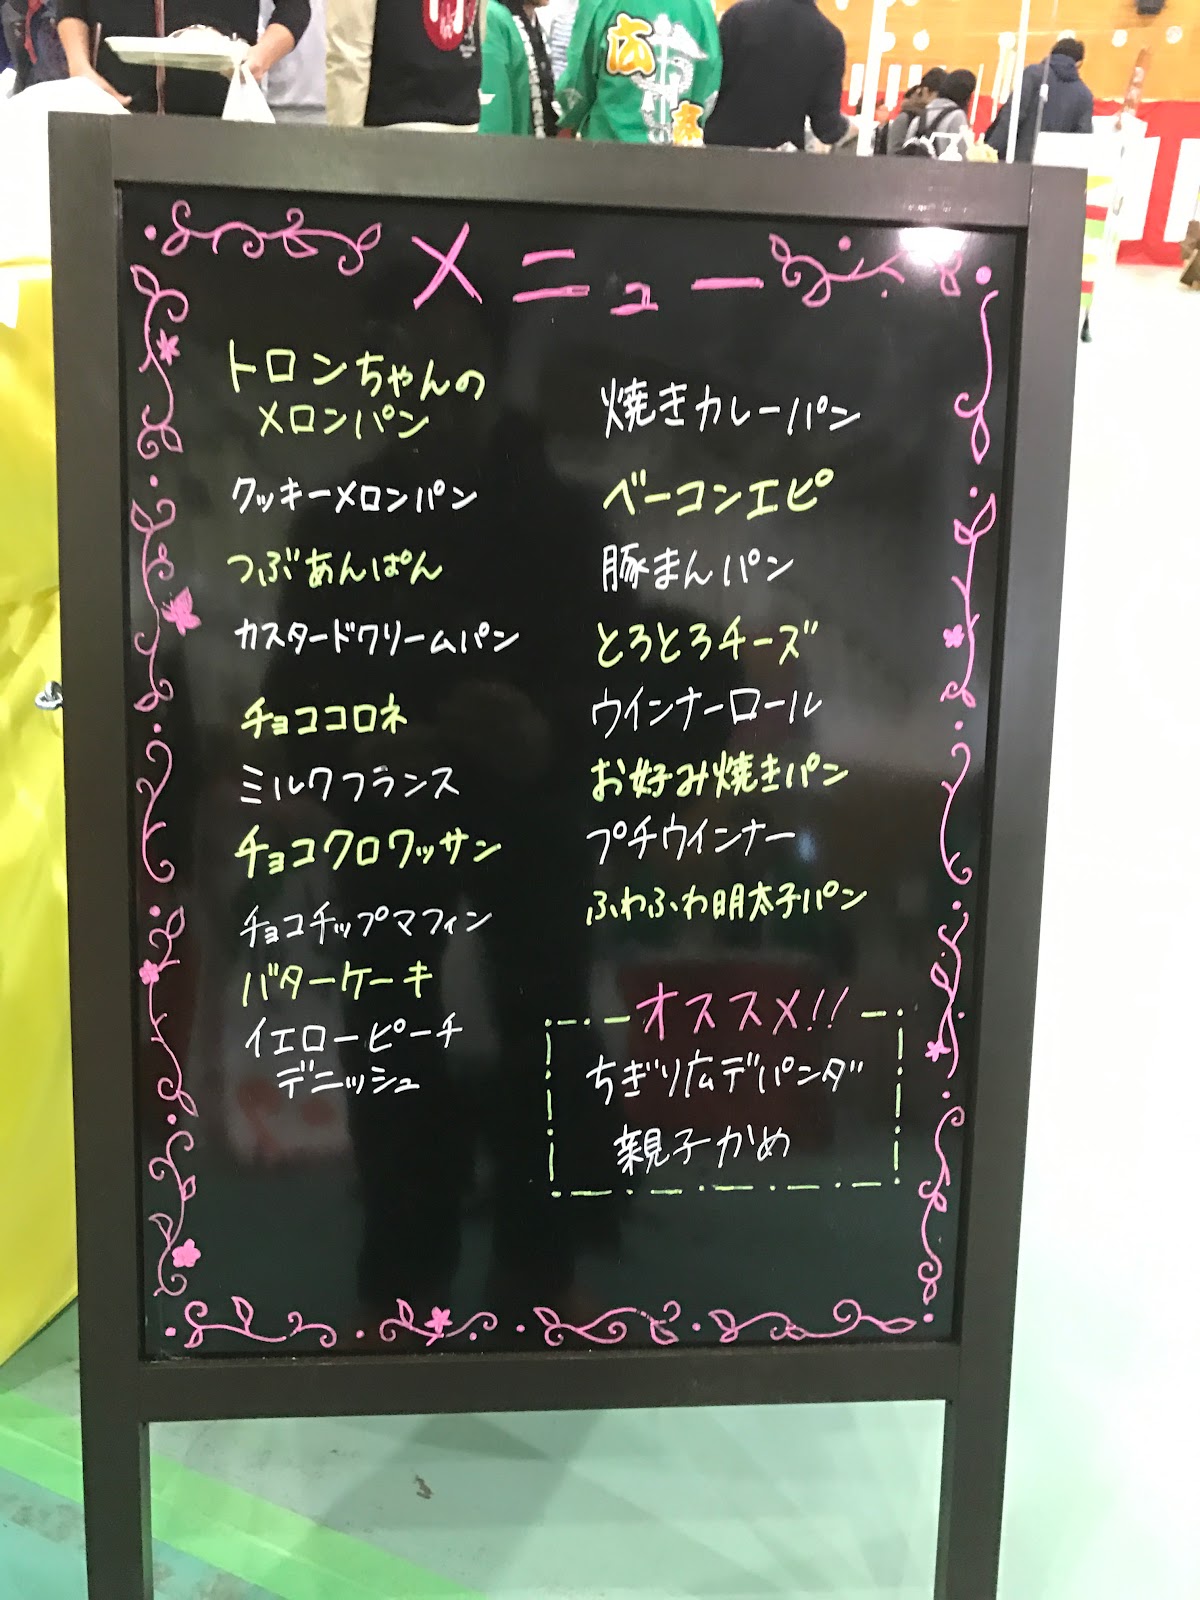 広
メニュー
トロンちゃんの
メロンパン
クッキーメロンパン
つぶあんぱん
カスタードクリームパン
チョココロネ
ミルクフランス
チョコクロワッサン
チョコチップマフィン
バターケーキ
イエローピーチ
デニッシュ
焼きカレーパン
ベーコンエピ
豚まんパン
とろとろチーズ
ウインナーロール
お好み焼きパン
プチウインナー
ふわふわ明太子パン
オススメ!!
ちぎり広デパンダ
親子かめ